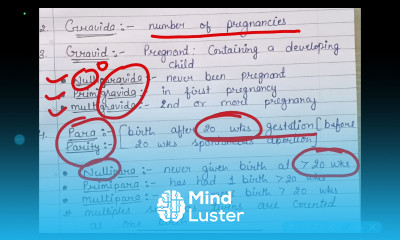 2. Gravida :- number of pregnancies
3. Gravid :- Pregnant: Containing a developing
child
• Nulligravida :- never been pregnant
• Primigravida :- in first pregnancy
• multigravida :- 2nd or more pregnancy
4. Para :- [birth after 20 wks gestation [before
Parity :- 20 wks spontaneous abortion]
• Nullipara :- never given birth at >20 wks
• Primipara :- has had 1 birth >20 wks
• multipara :- birth 7 20 wks
* multiples are counted
as one
Mind
Luster